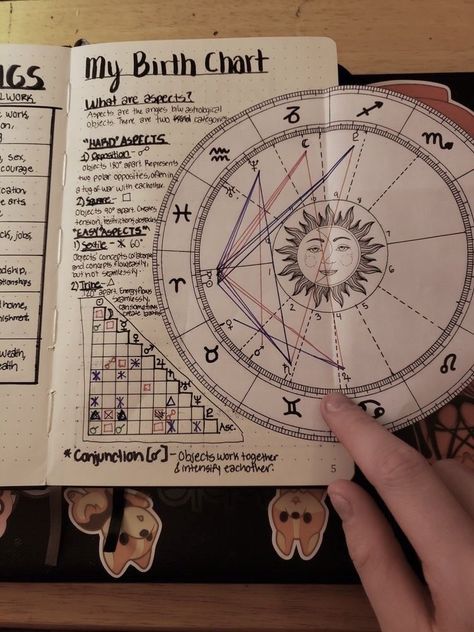 NGS
L WORK
work,
on,
, sex,
courage
cation
e arts
k, jobs,
ndship,
ationships
home,
nishment.
wealth,
ealth
My Birth Chart
What are aspects?
Aspects are the angles b/w astrological
objects. There are two categories
"HARD" ASPECTS
1) Opposition - ☍
Objects 180° apart. Represents
two polar opposities, often in
a tug of war with eachother.
2) Square - □
Objects 90° apart. Creates
tension, restrictions,
"EASY ASPECTS"
1) Sextile - ⚹ 60°
Objects' concepts
and concepts flow easily,
but not seamlessly.
2) Trine - △
120° apart. Energy flows
seamlessly,
can sometimes
create
Asc.
* Conjunction [☌] - Objects work together
& intensify eachother.
5
♑ ♐ ♏ ♒ ♓ ♈ ♉ ♊ ♋ ♌